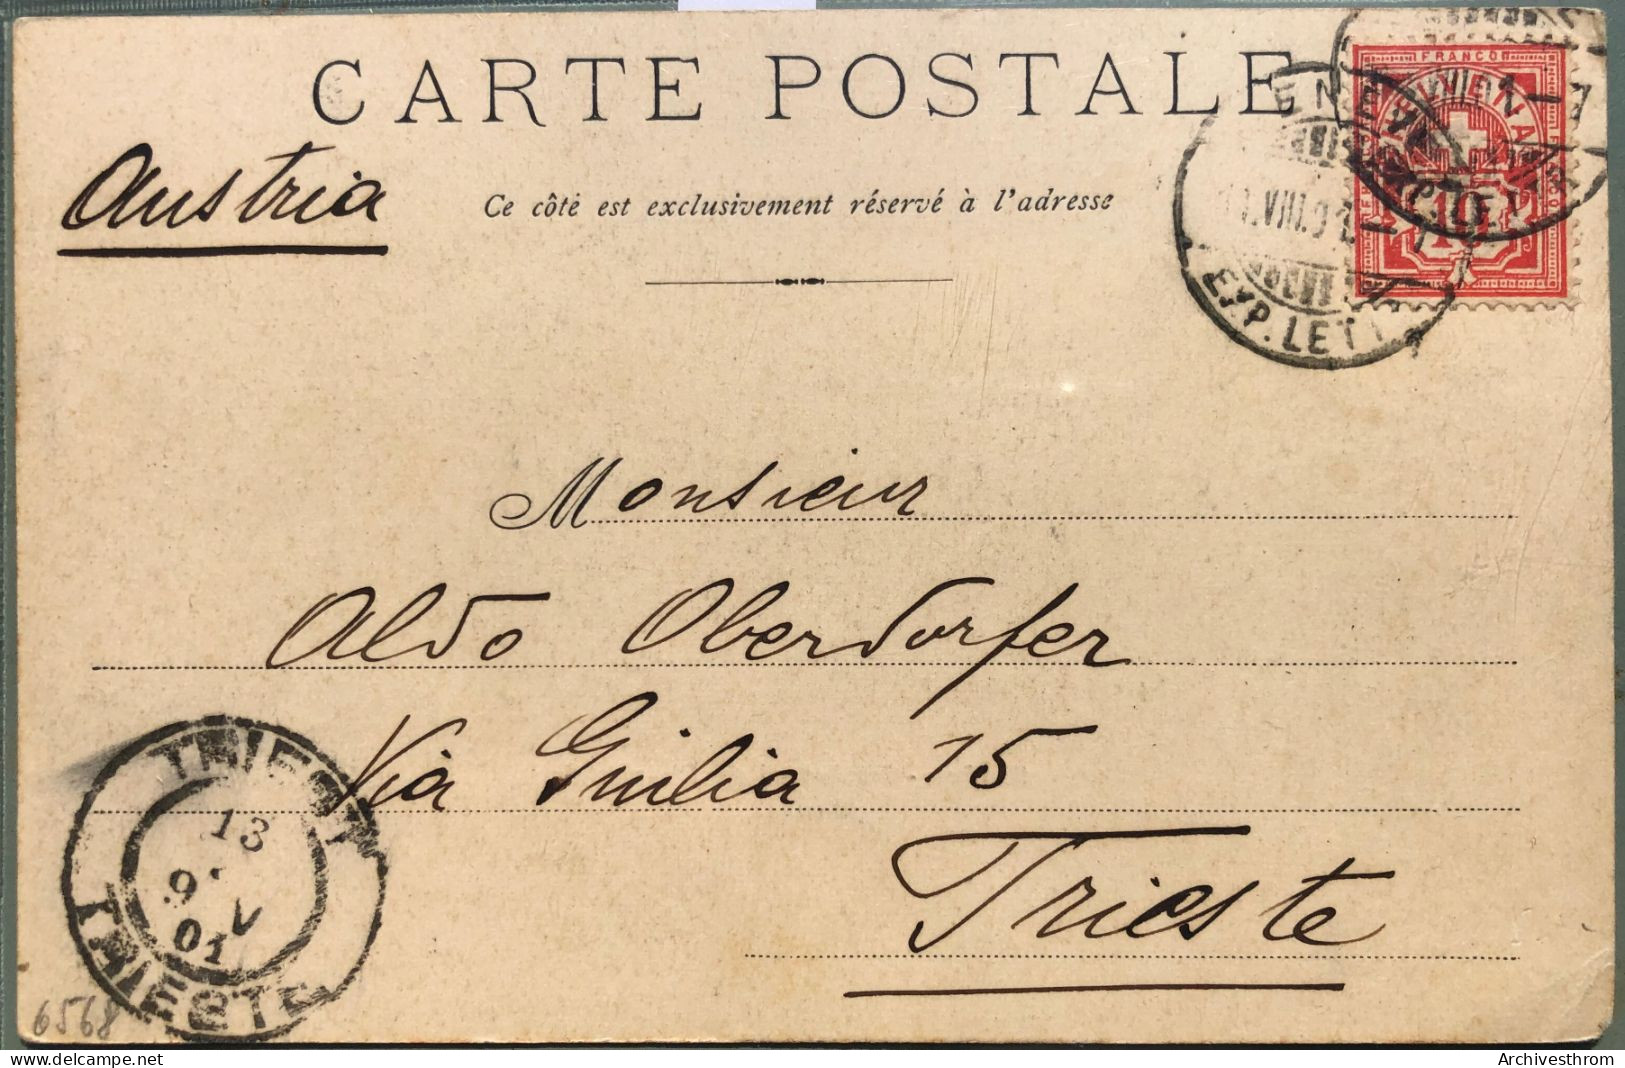 CARTE POSTALE
Austria
Ce côté est exclusivement réservé à l'adresse
FRANCO
10
EXP. LETT
Monsieur
Aldo Oberdorfer
Via Giulia 15
Trieste
TRIEST
13
9 V
01
TRIESTE
6568
Archivesthrom